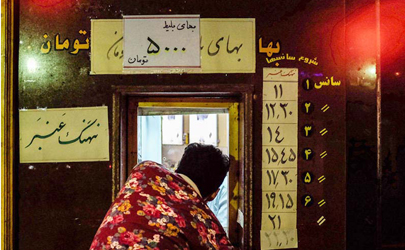 بهای بلیط
۵۰۰۰
تومان
بها
بهای
تومان
نهنگ عنبر
شروع سانسها
سانس
۱ ۱۱
۲ ۱۲.۳۰
۳ ۱۴
۴ ۱۵.۴۵
۵ ۱۷.۳۰
۶ ۱۹.۱۵
۲۱